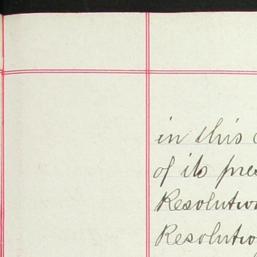 in this
of its pre
Resolution
Resolutio